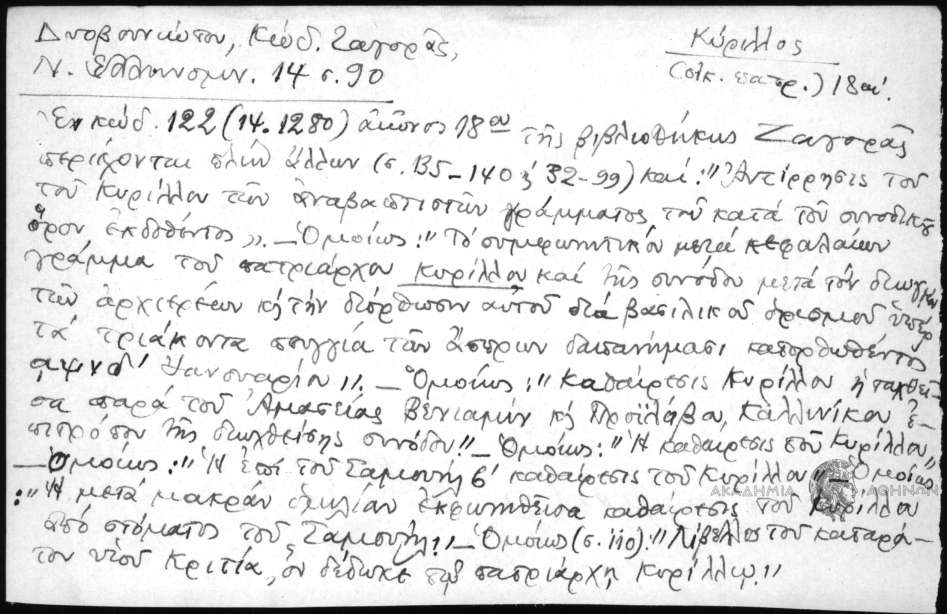 Δυοβουνιώτου, Κώδ. Ζαγορᾶς,
Ν. Ἑλληνομν. 14 σ. 90
Κύριλλος
(οἰκ. πατρ.) 18 αἰ.
Ἐν κώδ. 122 (14. 1280) αἰῶνος 18ου τῆς βιβλιοθήκης Ζαγορᾶς
περιέχονται πλὴν ἄλλων (σ. 135-140 ἢ 92-99) καί: "Ἀντίρρησις τοῦ
τοῦ Κυρίλλου τῶν ἀναβαπτιστῶν γράμματος τοῦ κατὰ τοῦ συνοδικοῦ
ὅρου ἐκδοθέντος». – Ὁμοίως: "Τὸ συμφωνητικὸν μετὰ κεφαλαίων
γράμμα τοῦ πατριάρχου Κυρίλλου καὶ τῆς συνόδου μετὰ τὸν διωγμὸν
τῶν ἀρχιερέων κὴ τὴν διόρθωσιν αὐτοῦ διὰ βασιλικοῦ ὁρισμοῦ ὑπὲρ
τὰ τριάκοντα πουγγία τῶν ἄσπρων δαπανήμασι κατορθωθέντος
αψνδ' Ἰανουαρίου". – Ὁμοίως: "Καθαίρεσις Κυρίλλου ἡ ταχθεῖ-
σα παρὰ τοῦ Ἀμασείας Βενιαμὴν κὴ Προϊλάβου Καλλινίκου ἐ-
πιτρόπου τῆς διωχθείσης συνόδου" – Ὁμοίως: "Ἡ καθαίρεσις τοῦ Κυρίλλου"
– Ὁμοίως: "Ἡ ἐπὶ τοῦ Σαμουὴλ β' καθαίρεσις τοῦ Κυρίλλου" – Ὁμοίως
: "Ἡ μετὰ μακρὰν ὁμιλίαν ἐκφωνηθεῖσα καθαίρεσις τοῦ Κυρίλλου
ἀπὸ στόματος τοῦ Σαμουήλ" – Ὁμοίως (σ. 110): "Λίβελλος τοῦ καταρά-
του νέου Κριτία, ὃν δέδωκε τῷ πατριάρχῃ Κυρίλλῳ."
ΑΚΑΔΗΜΙΑ ΑΘΗΝΩΝ